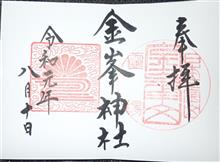 奉拝
金峯神社
令和元年
八月十日